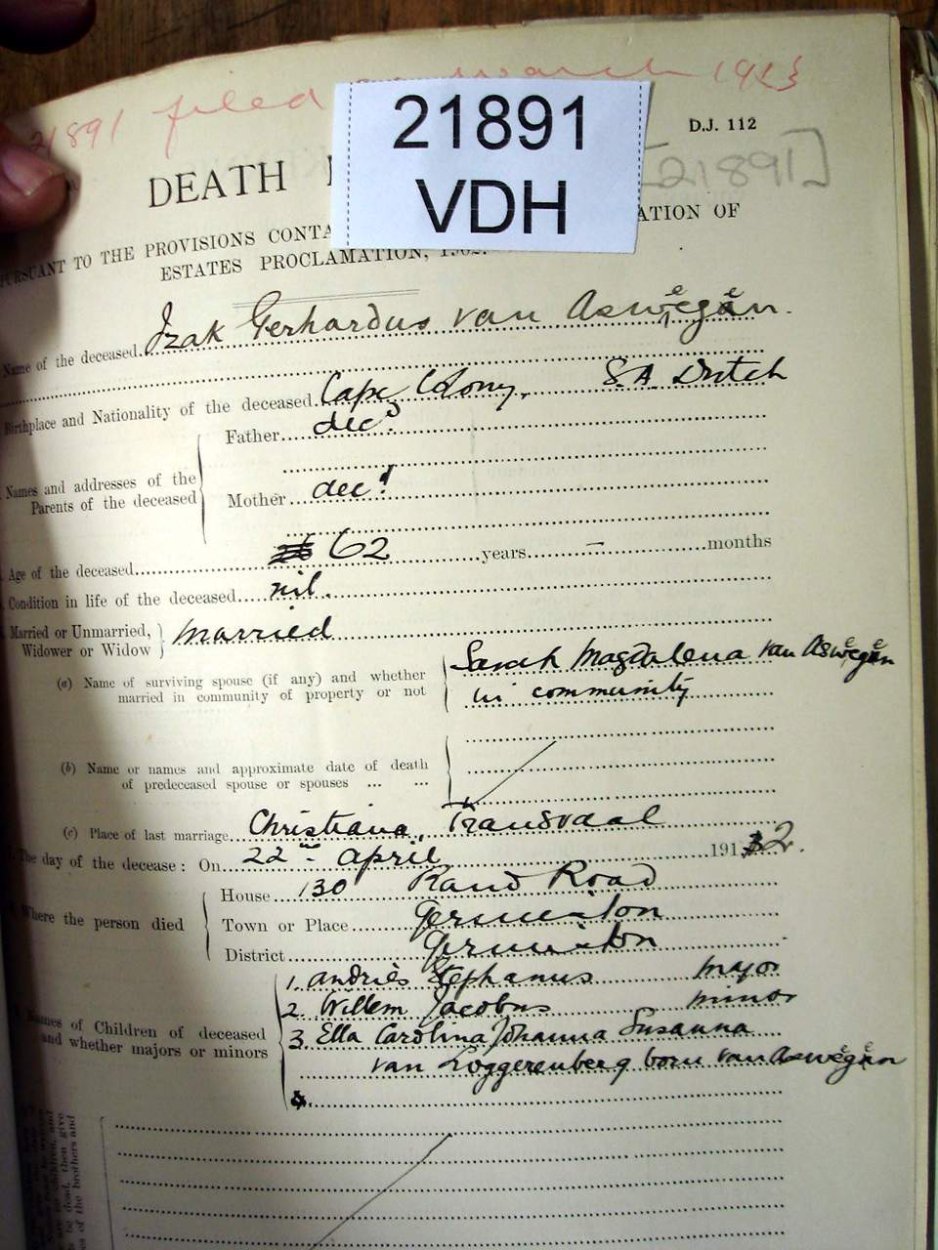 21891 filed march 1923
21891
VDH
D.J. 112
[21891]
DEATH
PURSUANT TO THE PROVISIONS CONTA ATION OF
ESTATES PROCLAMATION, 1902.
Name of the deceased Izak Gerhardus van Aswegen.
Birthplace and Nationality of the deceased Cape Colony. S.A. Dutch
Names and addresses of the Parents of the deceased
Father decd.
Mother decd.
Age of the deceased 62 years – months
Condition in life of the deceased nil.
Married or Unmarried, Widower or Widow married
(a) Name of surviving spouse (if any) and whether married in community of property or not
Sarah Magdalena van Aswegen
in community
(b) Name or names and approximate date of death
of predeceased spouse or spouses ... ...
(c) Place of last marriage Christiana, Transvaal
The day of the decease: On 22nd April 1912.
Where the person died
House 130 Rand Road
Town or Place Germiston
District Germiston
Names of Children of deceased and whether majors or minors
1. Andries Stephanus major
2. Willem Jacobus minor
3. Ella Carolina Johanna Susanna
van Loggerenberg born van Aswegen
4.
be dead, then give
es of the brothers and